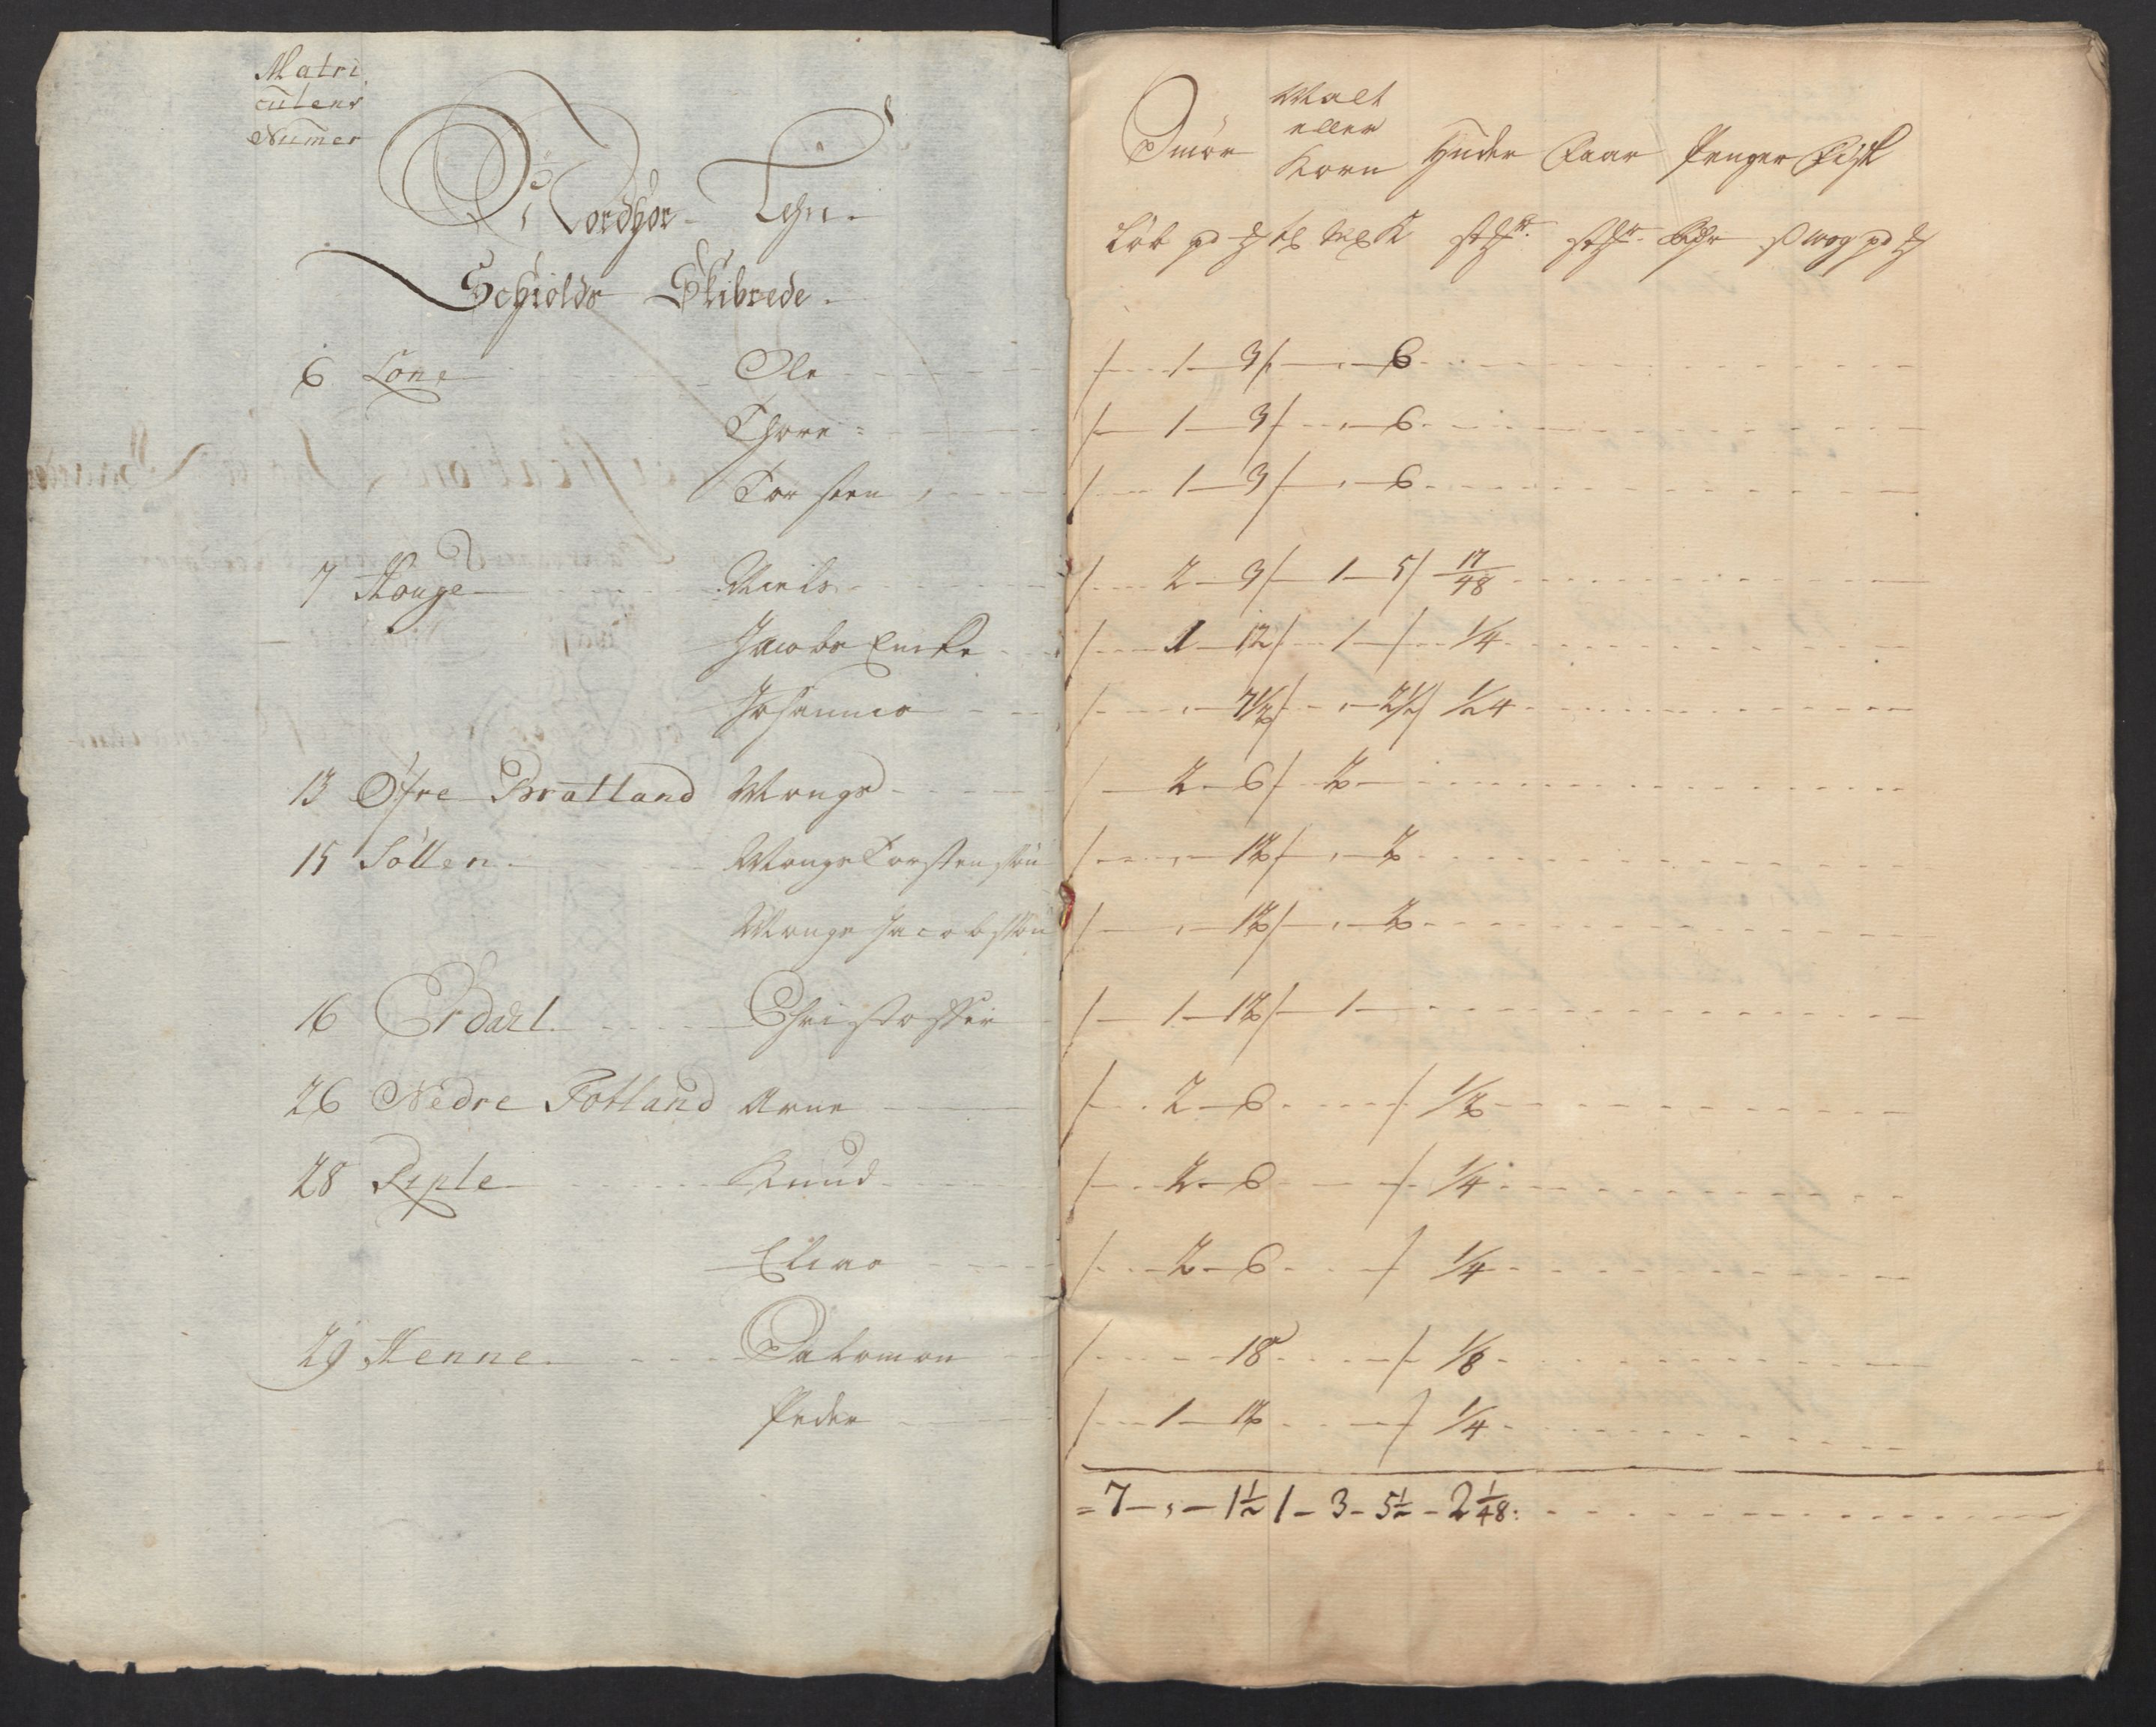 Matri
culens
Numer
I Nordhor Lehn.
Schiolds Skibrede.
6 Lone Ole
Thore
Torsten
7 Houge Niels
Jacobs Encke
Johannes
13 Øfre Bratland Mongs
15 Söllen Mongs Torstensøn
Mongs Jacobsøn
16 Erdahl Christoffer
26 Nedre Totland Arne
28 Riple Knud
Elias
29 Henne Salomon
Peder
Smør Malt eller Korn Huder Faar Penger Fisk
Løb pd
1 - 3 / - 6
1 - 3 / - 6
1 - 3 / - 6
2 - 3 / 1 - 5 / 17/48
1 - 12 / 1 - / 1/4
7 1/2 / - 2 1/2 / 1/24
2 - 6 / 2
12 / - 2
12 / - 2
1 - 12 / 1
2 - 6 / 1/2
2 - 6 / 1/4
2 - 6 / 1/4
18 / 1/8
1 - 12 / 1/4
= 7 - , - 1 1/2 / - 3 - 5 1/2 - 2 1/48 :